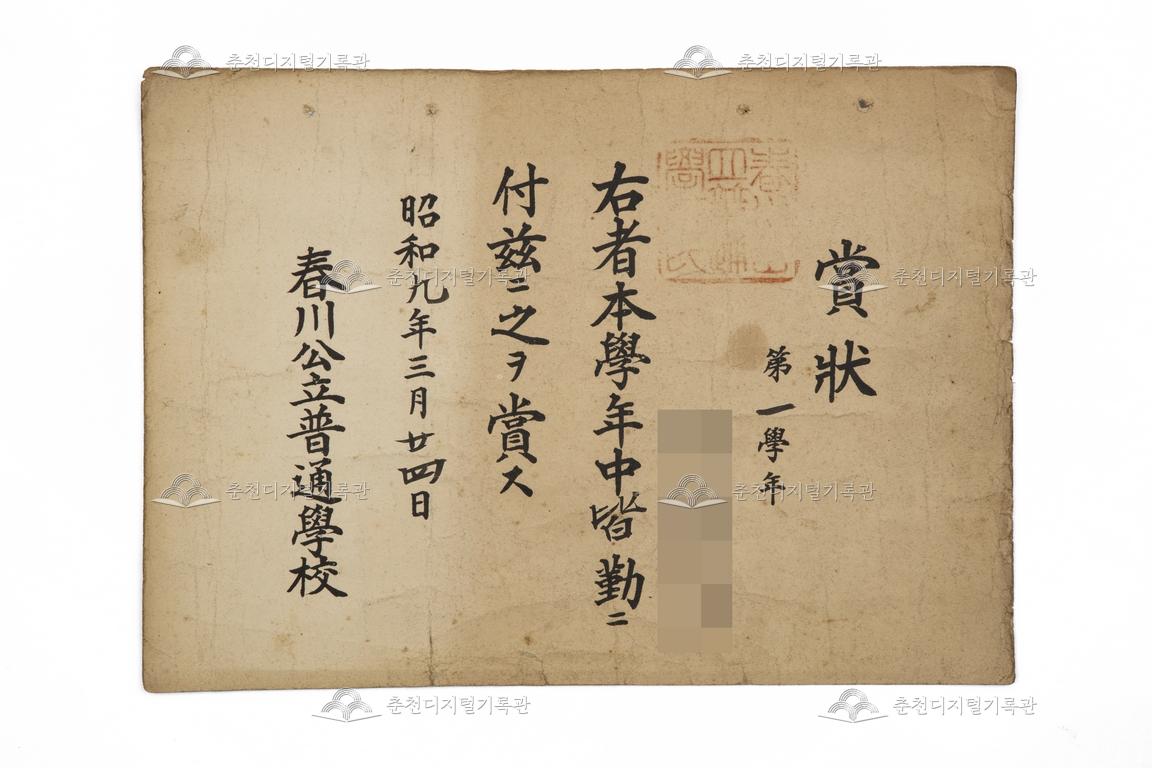 賞狀
第一學年
右者本學年中皆勤ニ
付玆ニ之ヲ賞ス
昭和九年三月廿四日
春川公立普通學校
춘천디지털기록관
춘천디지털기록관
춘천디지털기록관
춘천디지털기록관
춘천디지털기록관
춘천디지털기록관
춘천디지털기록관
춘천디지털기록관